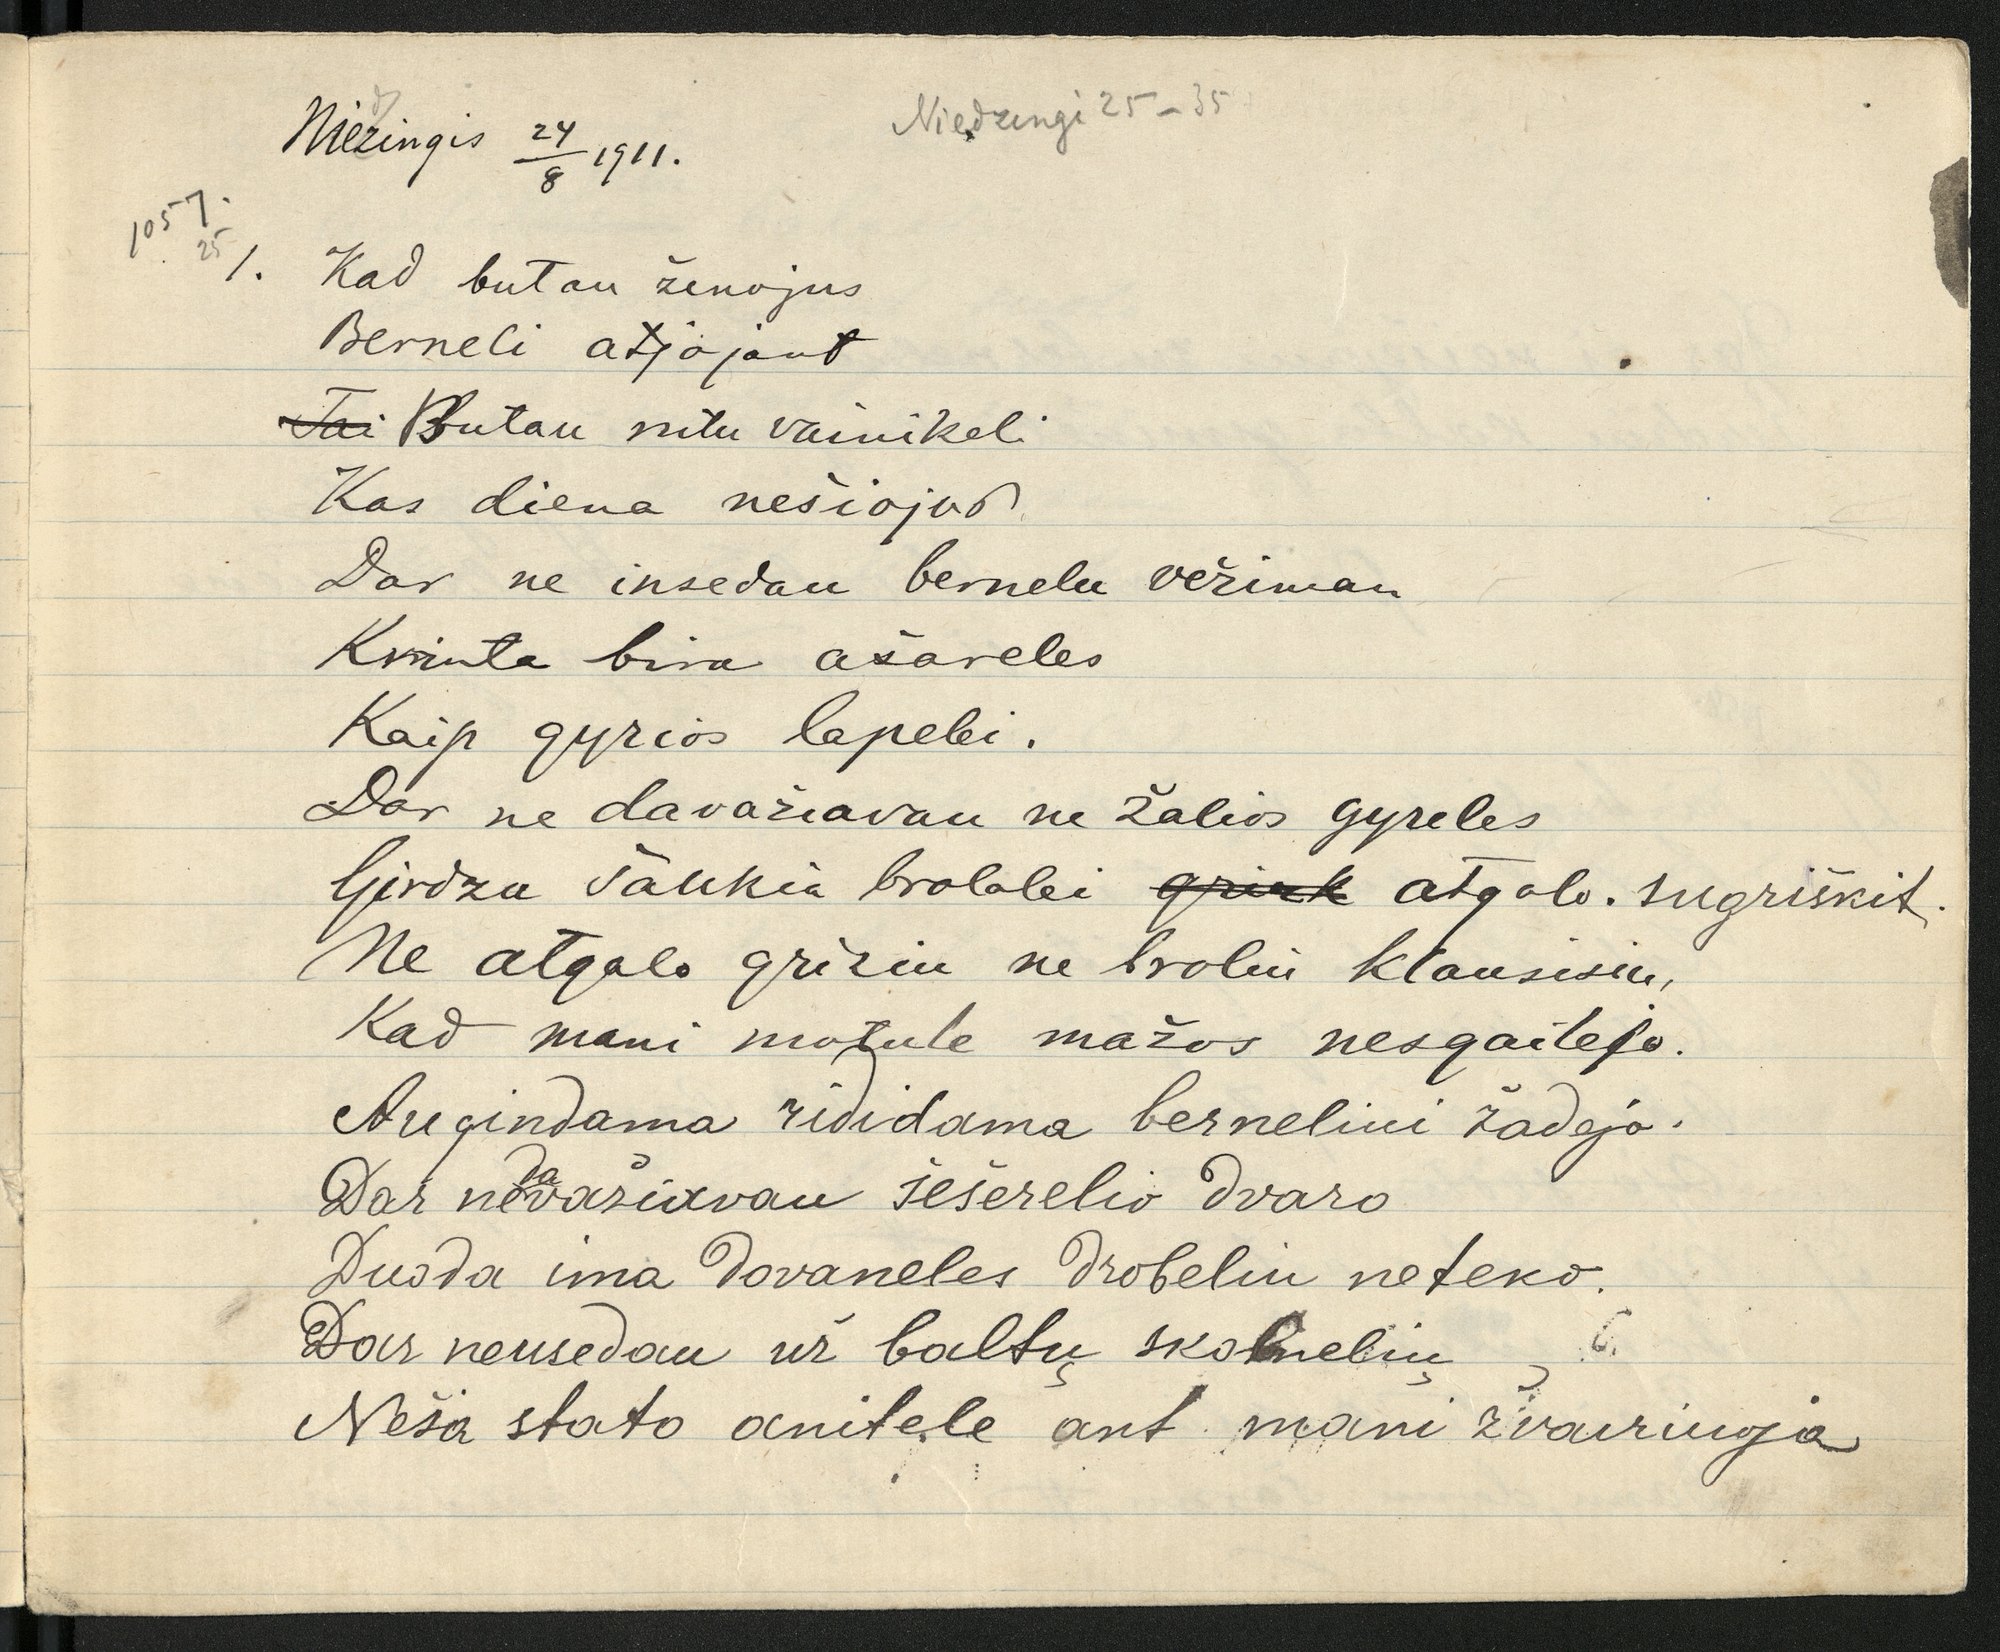 Niezingis 24/8 1911.
Niedzengi 25-35
1057.
25
1. Kad butau žinojus
Berneli atjojant
Tai Butau rutu vainikeli
Kas diena nešiojus
Dar ne insedau bernelu vežiman
Krinta bira ašareles
Kaip gyrios lapelei.
Dar ne davažiavau ne žalios gyreles
Girdzu šaukia brolalei grizk atgalo. sugriškit.
Ne atgalo grīsiu ne broliu klausisiu,
Kad mani motule mažos nesgailejo.
Augindama rididama berneliui žadejo.
Dar nedavažiavau šešerelio dvaro
Duoda ima dovaneles drobeliu neteko.
Dar neusedau už baltų skomelių
Neša stato anitele ant mani žvairiuoja